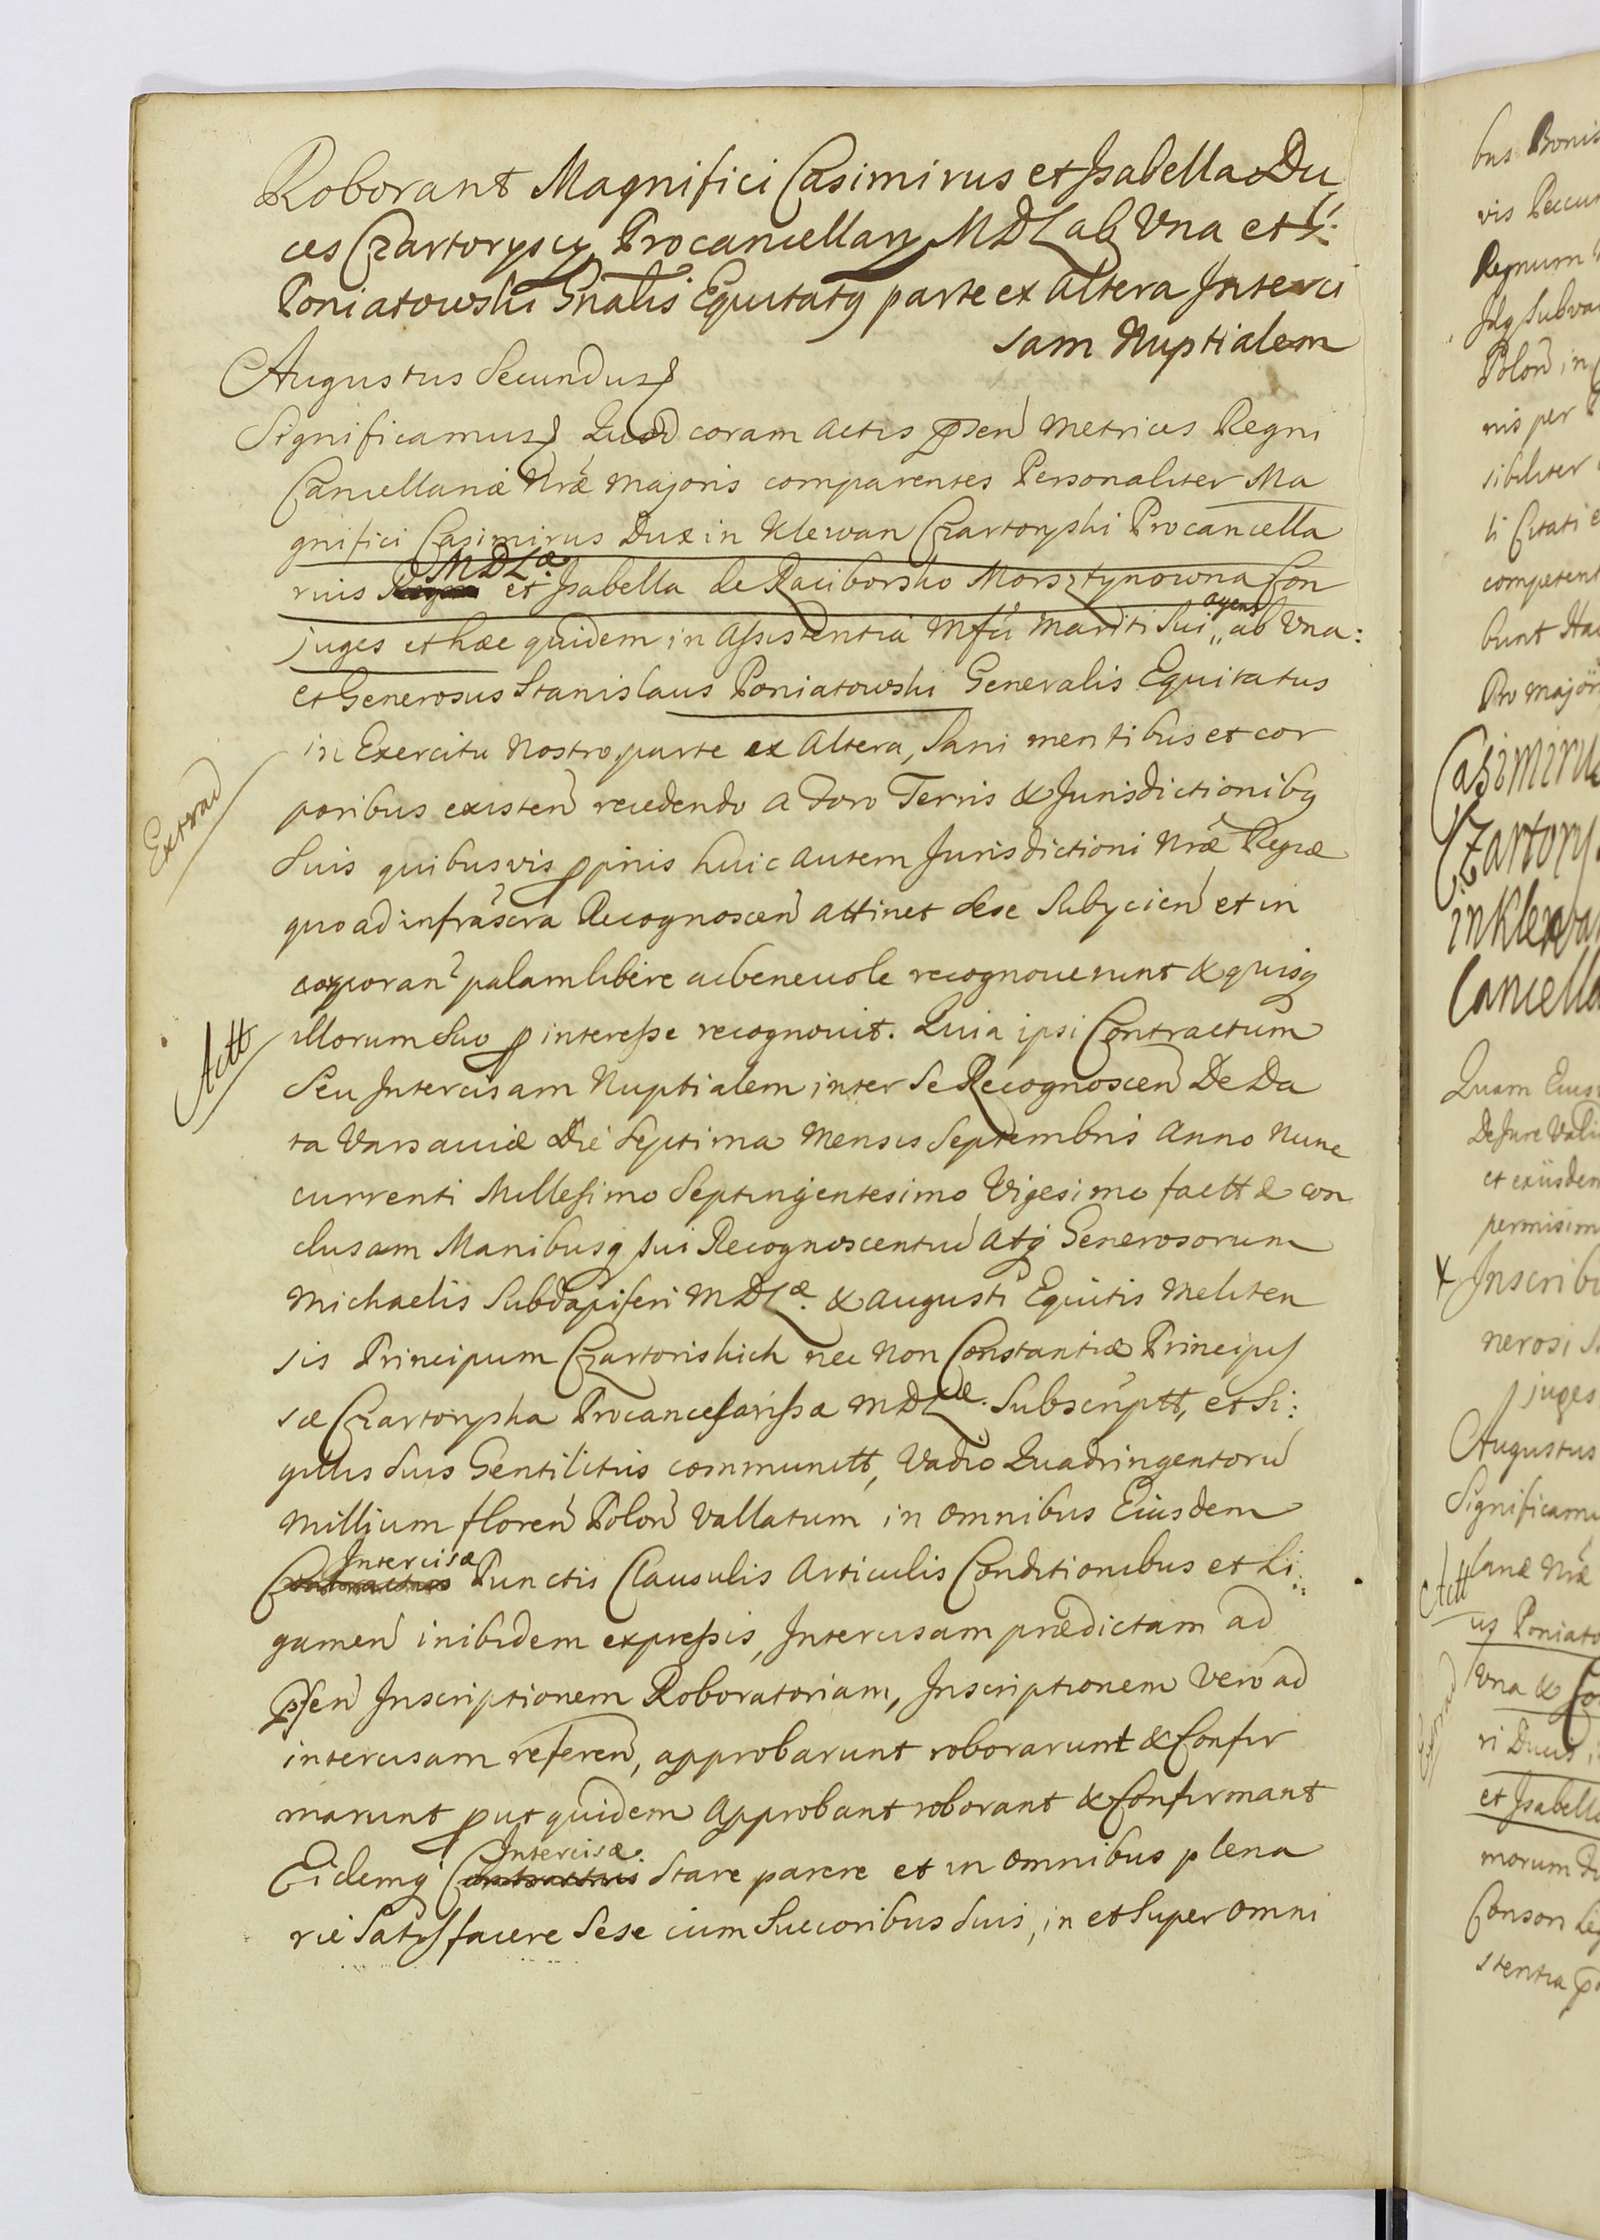 Roborant Magnifici Casimirus et Isabella Du
ces Czartoryscy Procancellarij MDL ab Vna et G:
Poniatowski Gnalis Equitatq parte ex altera Interci
sam Nuptialem
Augustus Secundus
Significamus Quod coram actis psen Metrices Regni
Cancellariæ Nræ majoris comparentes Personaliter Ma
gnifici Casimirus Dux in Klewan Czartoryski Procancella
MDLæ.
rius et Isabella de Raciborsko Morsztynowna Con
agens
juges et hæc quidem in Assistentia Mfci Mariti Sui ab Vna:
et Generosus Stanislaus Poniatowski Generalis Equitatus
in Exercitu Nostro, parte ex Altera, Sani mentibus et cor
Extrad
poribus existen recedendo a Foro Terris & Jurisdictionibq
Suis quibusvis ppriis huic autem Jurisdictioni Nræ Regiæ
quoad infrascra Recognoscen attinet sese Subycien et in
corporan palam libere ac benevole recognoverunt & quisq
Actt
illorum Suo p interesse recognovit. Quia ipsi Contractum
Seu Intercisam Nuptialem inter Se Recognoscen De Da
ta Varsaviæ Die Septima Mensis Septembris Anno Nunc
currenti Millesimo Septingentesimo Vigesimo factt & con
clusam Manibusq sui Recognoscentiu Atq Generosorum
Michaelis Subdapiferi MDLæ. & Augusti Equitis Meliten
sis Principum Czartoriskich nec non Constantiæ Principis
sæ Czartoryska Procancellarissæ MDLæ. Subscriptt, et Si:
gillis suis Gentilitiis communitt, Vadio Quadringentoru
Millium floren Polon Vallatum in omnibus Eiusdem
Intercisæ
Contractus Punctis Clausulis Articulis Conditionibus et Li:
gamen inibidem expressis, Intercisam prædictam ad
psen Inscriptionem Roboratoriam, Inscriptionem Vero ad
intercisam referen, approbarunt roborarunt & Confir
marunt put quidem Approbant roborant & Confirmant
Intercisæ
Eidemq Contractui Stare parere et in omnibus plena
rie Satisfacere Sese cum Succoribus Suis, in et Super omni
bus Bonis
Regnum
Polon in
nis per
sibiliter
competent
Pro major
Casimirus
Czartorys
in Klewan
Cancella
De Jure Vali
et eiusdem
permisim
Inscribi
nerosi S
juges
Augustus
Significamu
Actt
us Poniato
Vna & Co
Extrad
et Isabella
morum
stentia